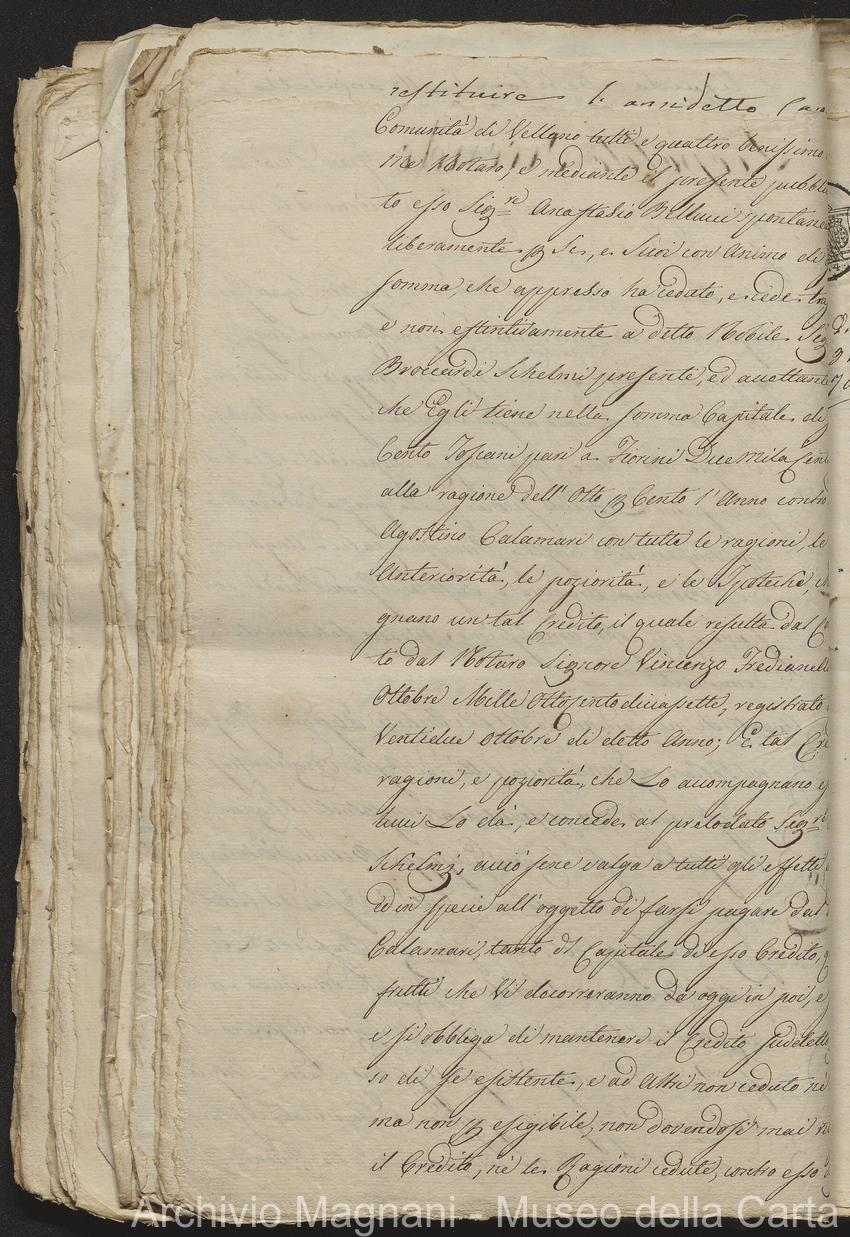 restituire l. annidetto Ca
Comunità di Vellano tutti e quattro benissimo
me Notaro, e mediante il presente pubbli
to esso Sig.re Anastasio Bellucci spontanea
liberamente p Se, e Suoi con Animo di
somma, che appresso ha ceduto, e cede tra
e non estintivamente a detto Nobile Sig
Broccardi Schelmi presente, ed accettante
che Egli tiene nella somma Capitale di
Cento Toscani pari a Fiorini Due mila Cen
alla ragione dell' Otto p Cento l' Anno contro
Agostino Calamari con tutte le ragioni, le
Anteriorità, le poziorità, e le Ipoteche, c
gnano un tal Credito, il quale resulta dal Co
to dal Notaro Signore Vincenzo Fredianell
Ottobre Mille Ottocento diciassette, registrato
Ventidue Ottobre di detto Anno; E tal Cre
ragioni, e poziorità, che Lo accompagnano e
lucci Lo dà, e concede al prelodato Sig.re
Schelmi, acciò sene valga a tutti gli effetti
ed in specie all' oggetto di farsi pagare dal
Calamari, tanto Capitale di esso Credito,
frutti che Vi decorreranno da oggi in poi, e
e si obbliga di mantenere il Credito sudetto
so di se esistente, e ad Altri non ceduto nè
ma non p esigibile, non dovendosi mai
il Credito, nè le Ragioni cedute, contro esso
Archivio Magnani - Museo della Carta